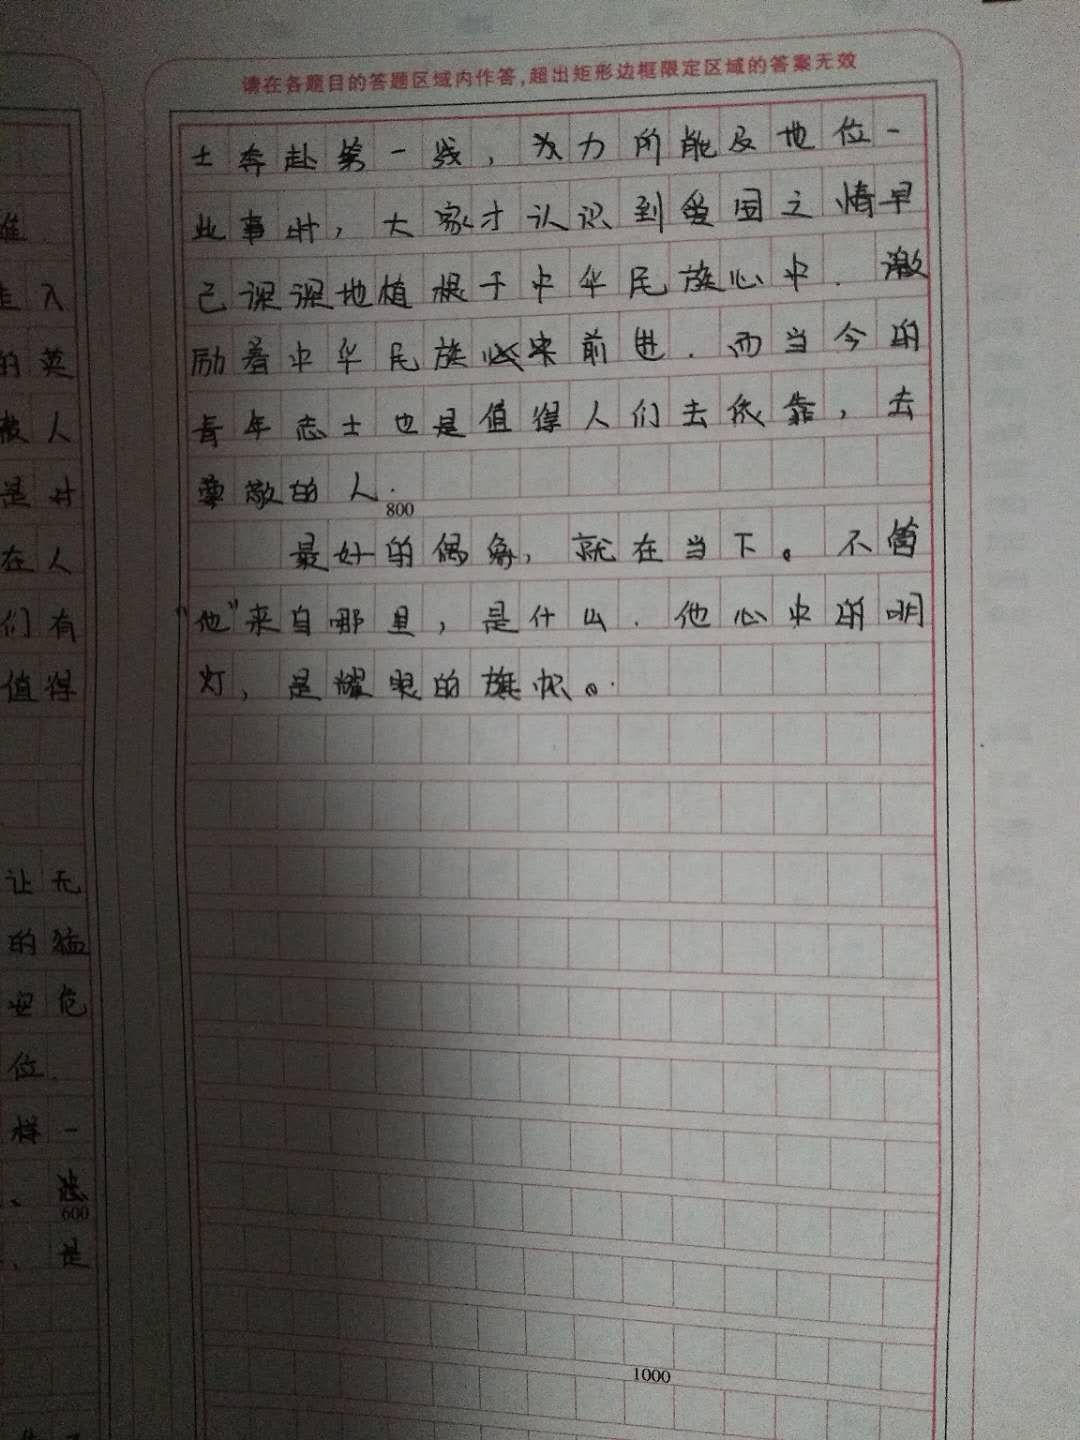 请在各题目的答题区域内作答,超出矩形边框限定区域的答案无效
士奔赴第一线，为力所能及地位一
些事时，大家才认识到爱国之情早
已深深地植根于中华民族心中.激
励着中华民族前进.而当今的
青年志士也是值得人们去依靠，去
尊敬的人.
800
最好的偶像，就在当下。不管
"他"来自哪里，是什么.他心中的明
灯，是耀眼的旗帜。
1000
准.
走入
的英
被人
是对
在人
们有
值得
让无
的猛
安危
位.
样一
600
是